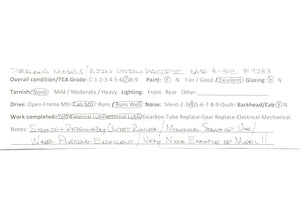 MODELS / AJIN UNION PACIFIC DASH 8-40C # 9283
Overall condition/TCA Grade: C-1-2-3-4-5-6-7-8-9 Paint: Y N Fair / Good / Excellent Glazing: Y N
Tarnish: None Mild / Moderate / Heavy Lighting: Front Rear Other
Drive: Open Frame Mtr Can Mtr / Runs / Runs Well Noise: Silent-2-3-4-5-6-7-8-9-Ouch! Backhead/Cab Y N
Work completed: Test-External Lube-Internal Lube/Gearbox-Tube Replace-Gear Replace-Electrical-Mechanical
Notes: Smooth Runner / Minimal Signs of Use /
Plating Excellent / Very Nice Example of Model !!